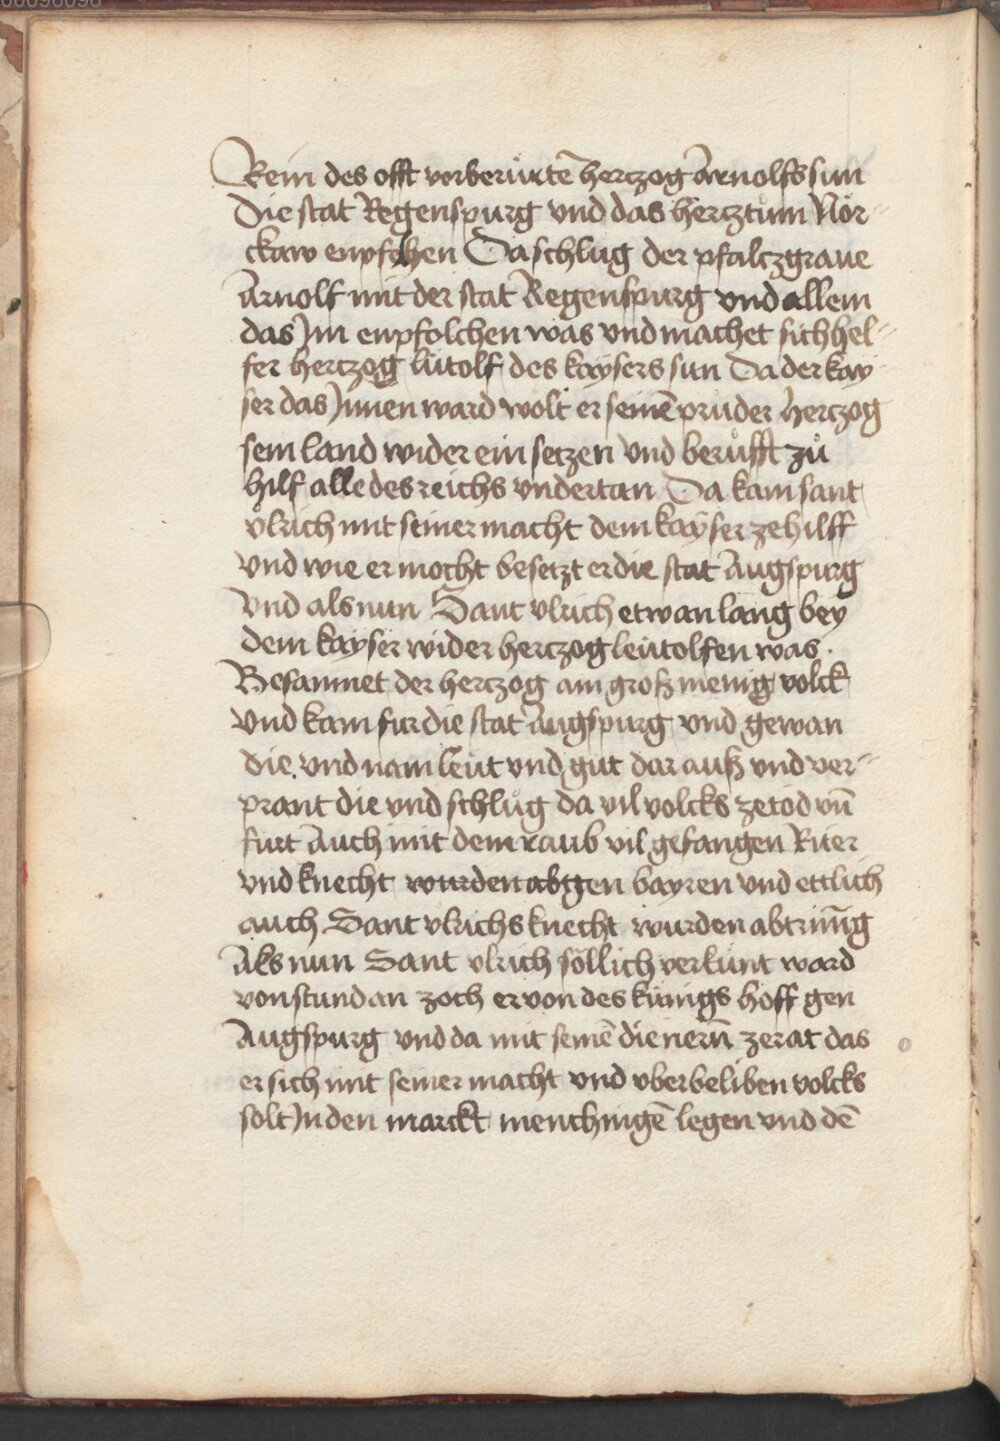 00096096
Rein des offt vorberürtē hertzog Arnolfs sun
Die stat Regenspurg vnd das hertztům Nör-
ckaw enpfehen Da schlůg der pfaltzgraue
Arnolf mit der stat Regenspurg vnd allem
das Jm enpfolchen was vnd machet sich hel-
fer hertzog lütolf des kaysers sun Da der kay
ser das Jnnen ward wolt er seinē prüder hertzog
sein land wider ein setzen vnd berůfft zů
hilf alle des reichs vndertan Da kam sant
vlrich mit seiner macht dem kayser ze hilff
vnd wie er mocht besetzt er die stat Augspurg
vnd als nun Sant vlrich etwan lang bey
dem kayser wider hertzog leutolfen was.
Besamnet der hertzog ain groß menig volck
vnd kam fur die stat Augspurg vnd gewan
die. vnd nam leut vnd gut dar auß vnd ver-
prant die vnd schlůg da vil volcks ze tod vn̄
furt Auch mit dem raub vil gefangen Riter
vnd knecht wurden abtgen bayren vnd ettlich
auch Sant vlrichs knecht wurden abtrün̄ig
Als nun Sant vlrich söllich verkunt ward
von stund an zoch er von des künigs hoff gen
Augspurg vnd da mit seinē dienern̄ ze rat das
er sich mit seiner macht vnd vberbeliben volcks
solt Jn den marckt menchingē legen vnd dē